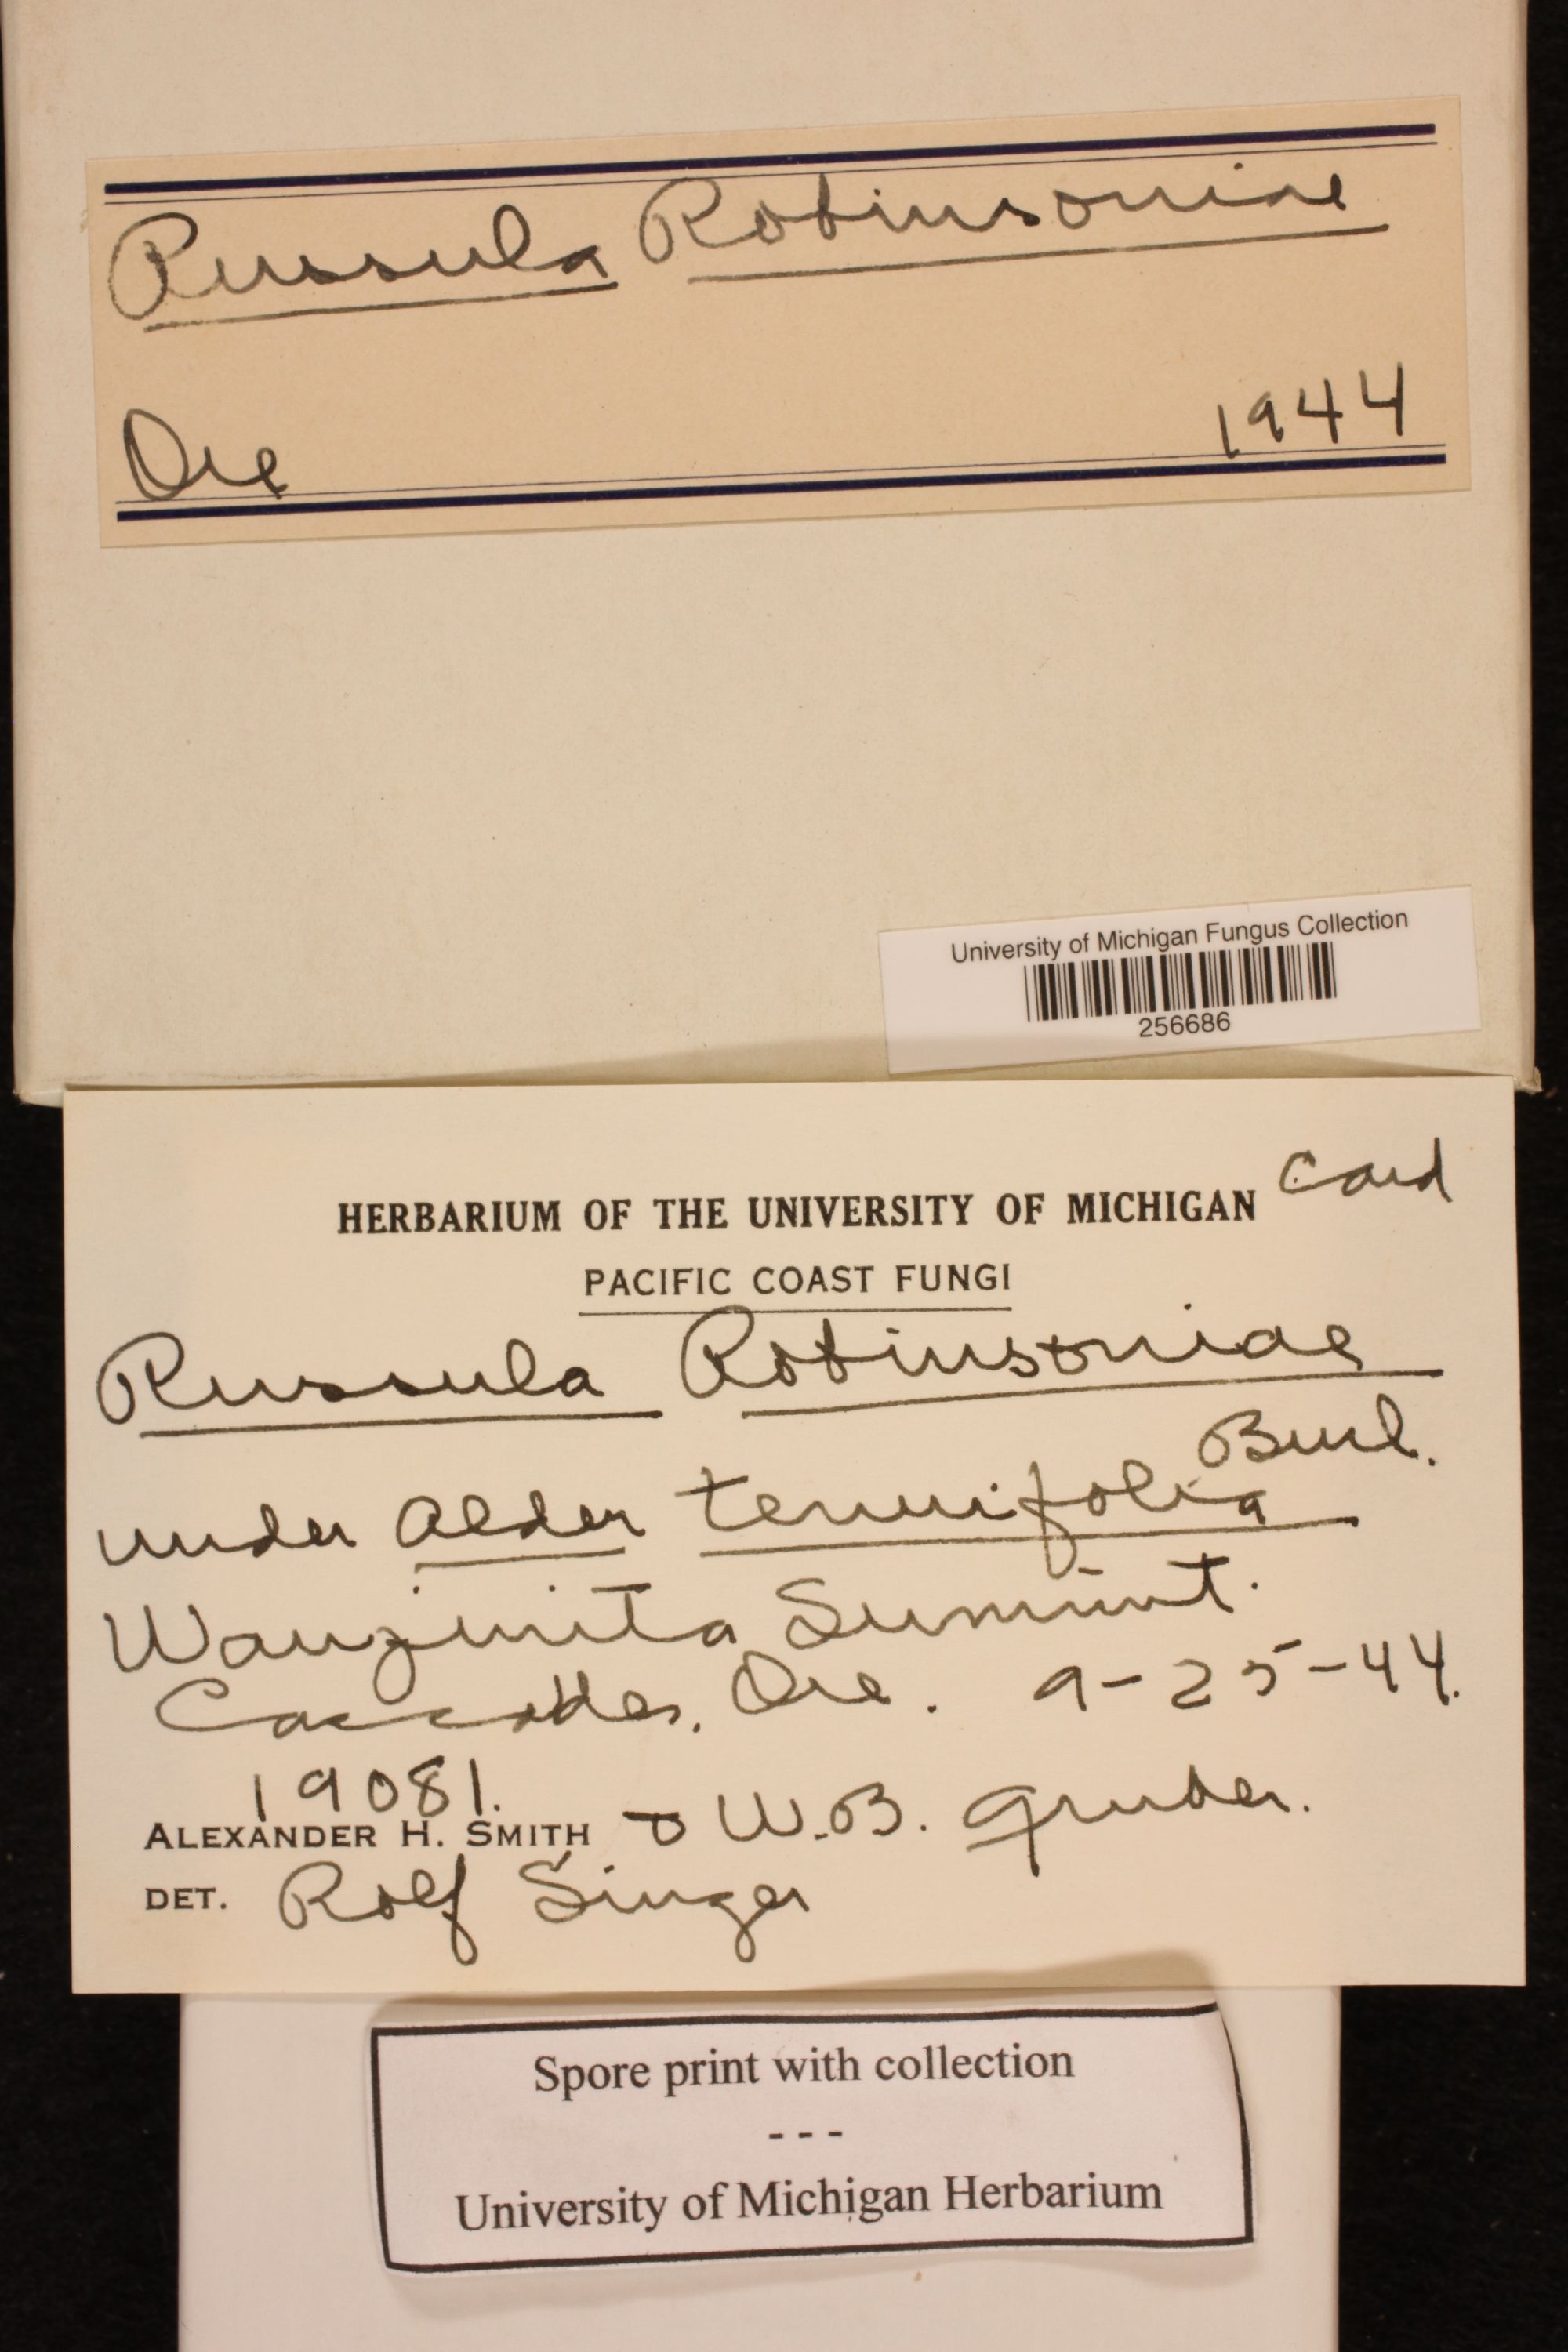 Russula Robinsoniae
Ore 1944
University of Michigan Fungus Collection
256686
Card
HERBARIUM OF THE UNIVERSITY OF MICHIGAN
PACIFIC COAST FUNGI
Russula Robinsoniae
Burl.
under Alder tenuifolia
Wapinita Summit.
Cascades, Ore. 9-25-44.
19081.
ALEXANDER H. SMITH & W.B. Gruber.
DET. Rolf Singer
Spore print with collection
---
University of Michigan Herbarium